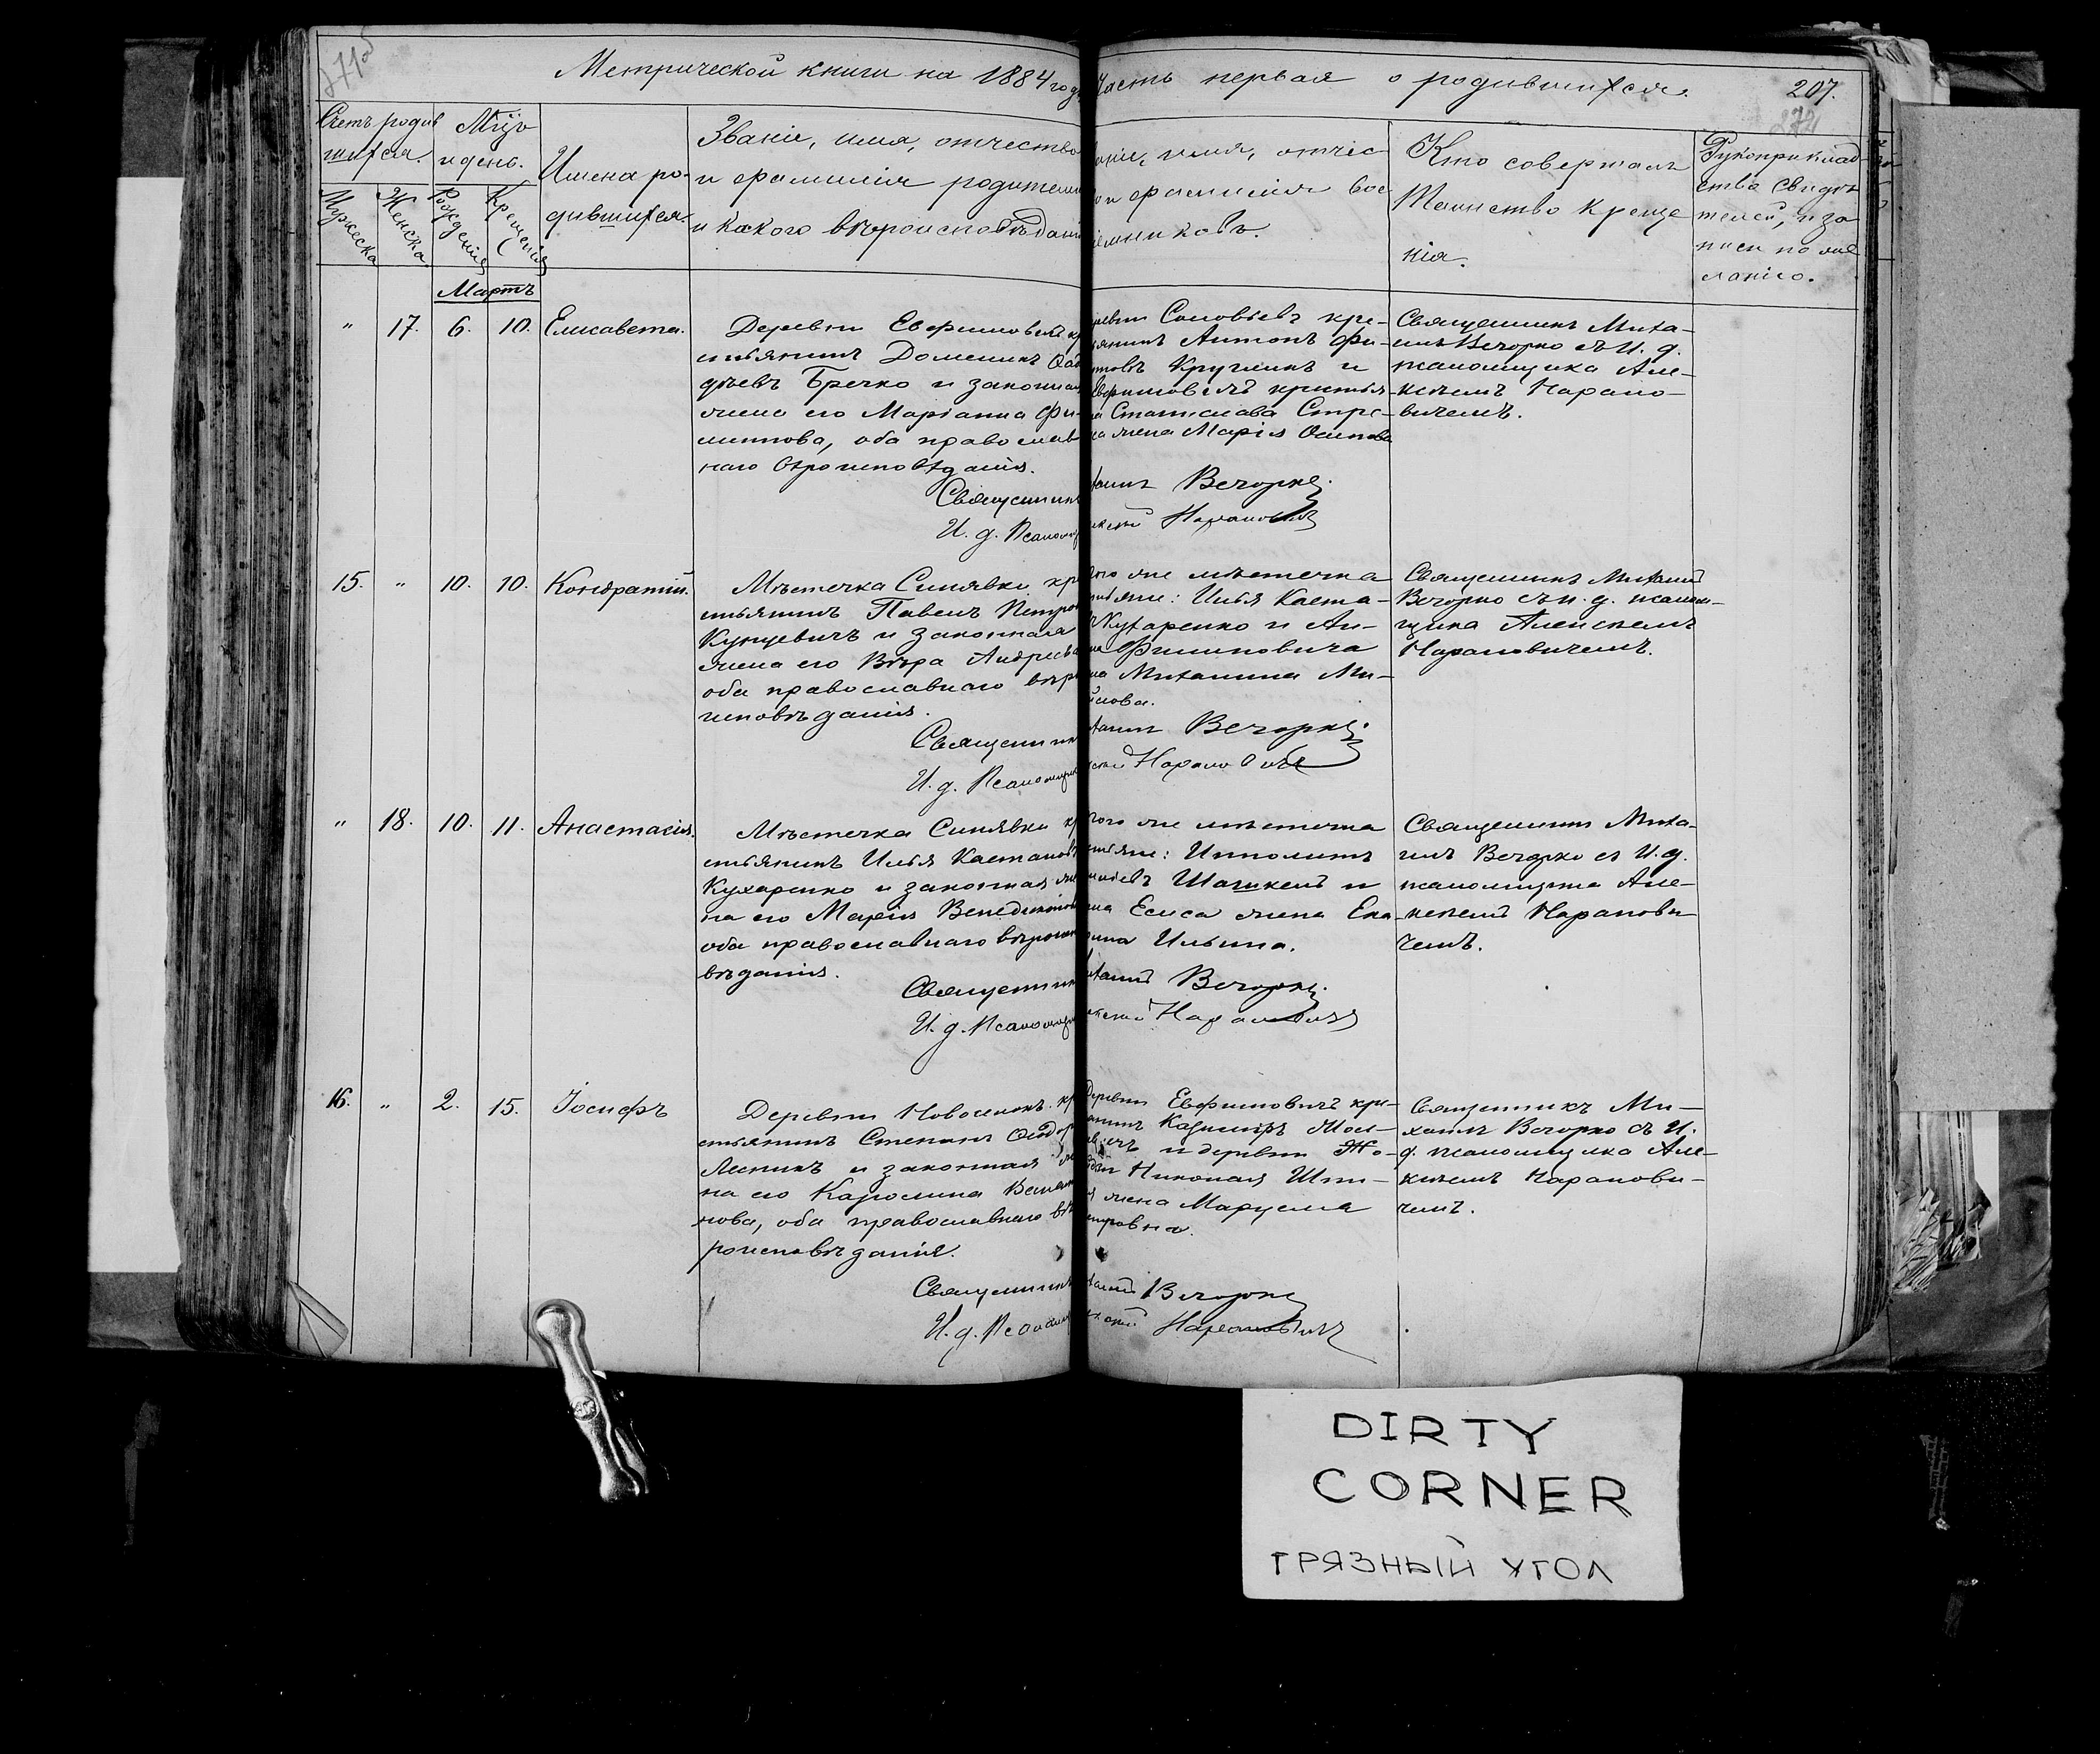 Метрической книги на 1884 годъ Часть первая о родившихся.
207.
Счетъ родив
шихся.
Мужеска
Женска
Мѣс.
и день.
Рожденія
Крещенія
Имена ро-
дившихся.
Званіе, имя, отчество
и фамилія родителей
и какого вѣроисповѣданія
имя, отчес
и фамилія вос
емниковъ.
Кто совершалъ
Таинство Креще
нія.
Рукоприклад-
ства свидѣ
телей, и за
писи по же
ланію.
Мартъ
" 17. 6. 10. Елисавета.
Деревни Евфимовичъ кр
стьянинъ Доменикъ
дѣевъ Бречко и законная
жена его Маріанна Фи-
липпова, оба православ-
наго вѣроисповѣданія.
Священникъ
И. д. Псаломщ
ревни Соловьевъ кре-
янинъ Антонъ Фи-
повъ Кругликъ и
Евфимовичъ крестья
Станислава Стре-
жена Марія Осипова
Вечорко.
Нарановичъ
Священникъ Миха-
илъ Вечорко съ И. д.
псаломщика Але-
ксѣемъ Нарано-
вичемъ.
15. " 10. 10. Кондратій.
Мѣстечка Синявки кре
стьянинъ Павелъ Петров
Кунцевичъ и законная
жена его Вѣра Андреева
оба православнаго вѣро
исповѣданія.
Священник
И. д. Псаломщик
того же мѣстечка
Илья Каста-
Кухаренко и Ан-
Филиповича
на Михалина Ми-
Вечорко.
Нарановичъ
Священникъ Михаилъ
Вечорко съ и. д. псалом-
щика Алексѣемъ
Нарановичемъ.
" 18. 10. 11. Анастасія.
Мѣстечка Синявки кр
стьянинъ Илья Кастановъ
Кухаренко и законная же
на его Марія Венедиктова
оба православнаго вѣроиспо
вѣданія.
Священник
И. д. Псаломщ
того же мѣстечка
Ипполитъ
Шашкель и
Елиса жена Ека
рина Ильина.
Вечорко.
Нарановичъ
Священникъ Миха-
илъ Вечорко съ И. д.
псаломщика Але-
ксѣемъ Нарановы
чемъ.
16. " 2. 15. Іосифъ
Деревни Новоселокъ кр
стьянинъ Степанъ Ѳедор
Лесникъ и законная же
на его Каролина
нова, оба православнаго вѣ
роисповѣданія.
Священникъ
И. д. Псалом
Деревни Евфимовичъ кре-
янинъ Казимиръ
и деревни
Николая
жена Марцеля
тровна.
Вечорко
Нарановичъ
Священникъ Ми-
хаилъ Вечорко съ И.
д. псаломщика Але-
ксѣемъ Наранови-
чемъ.
DIRTY
CORNER
ГРЯЗНЫЙ УГОЛ